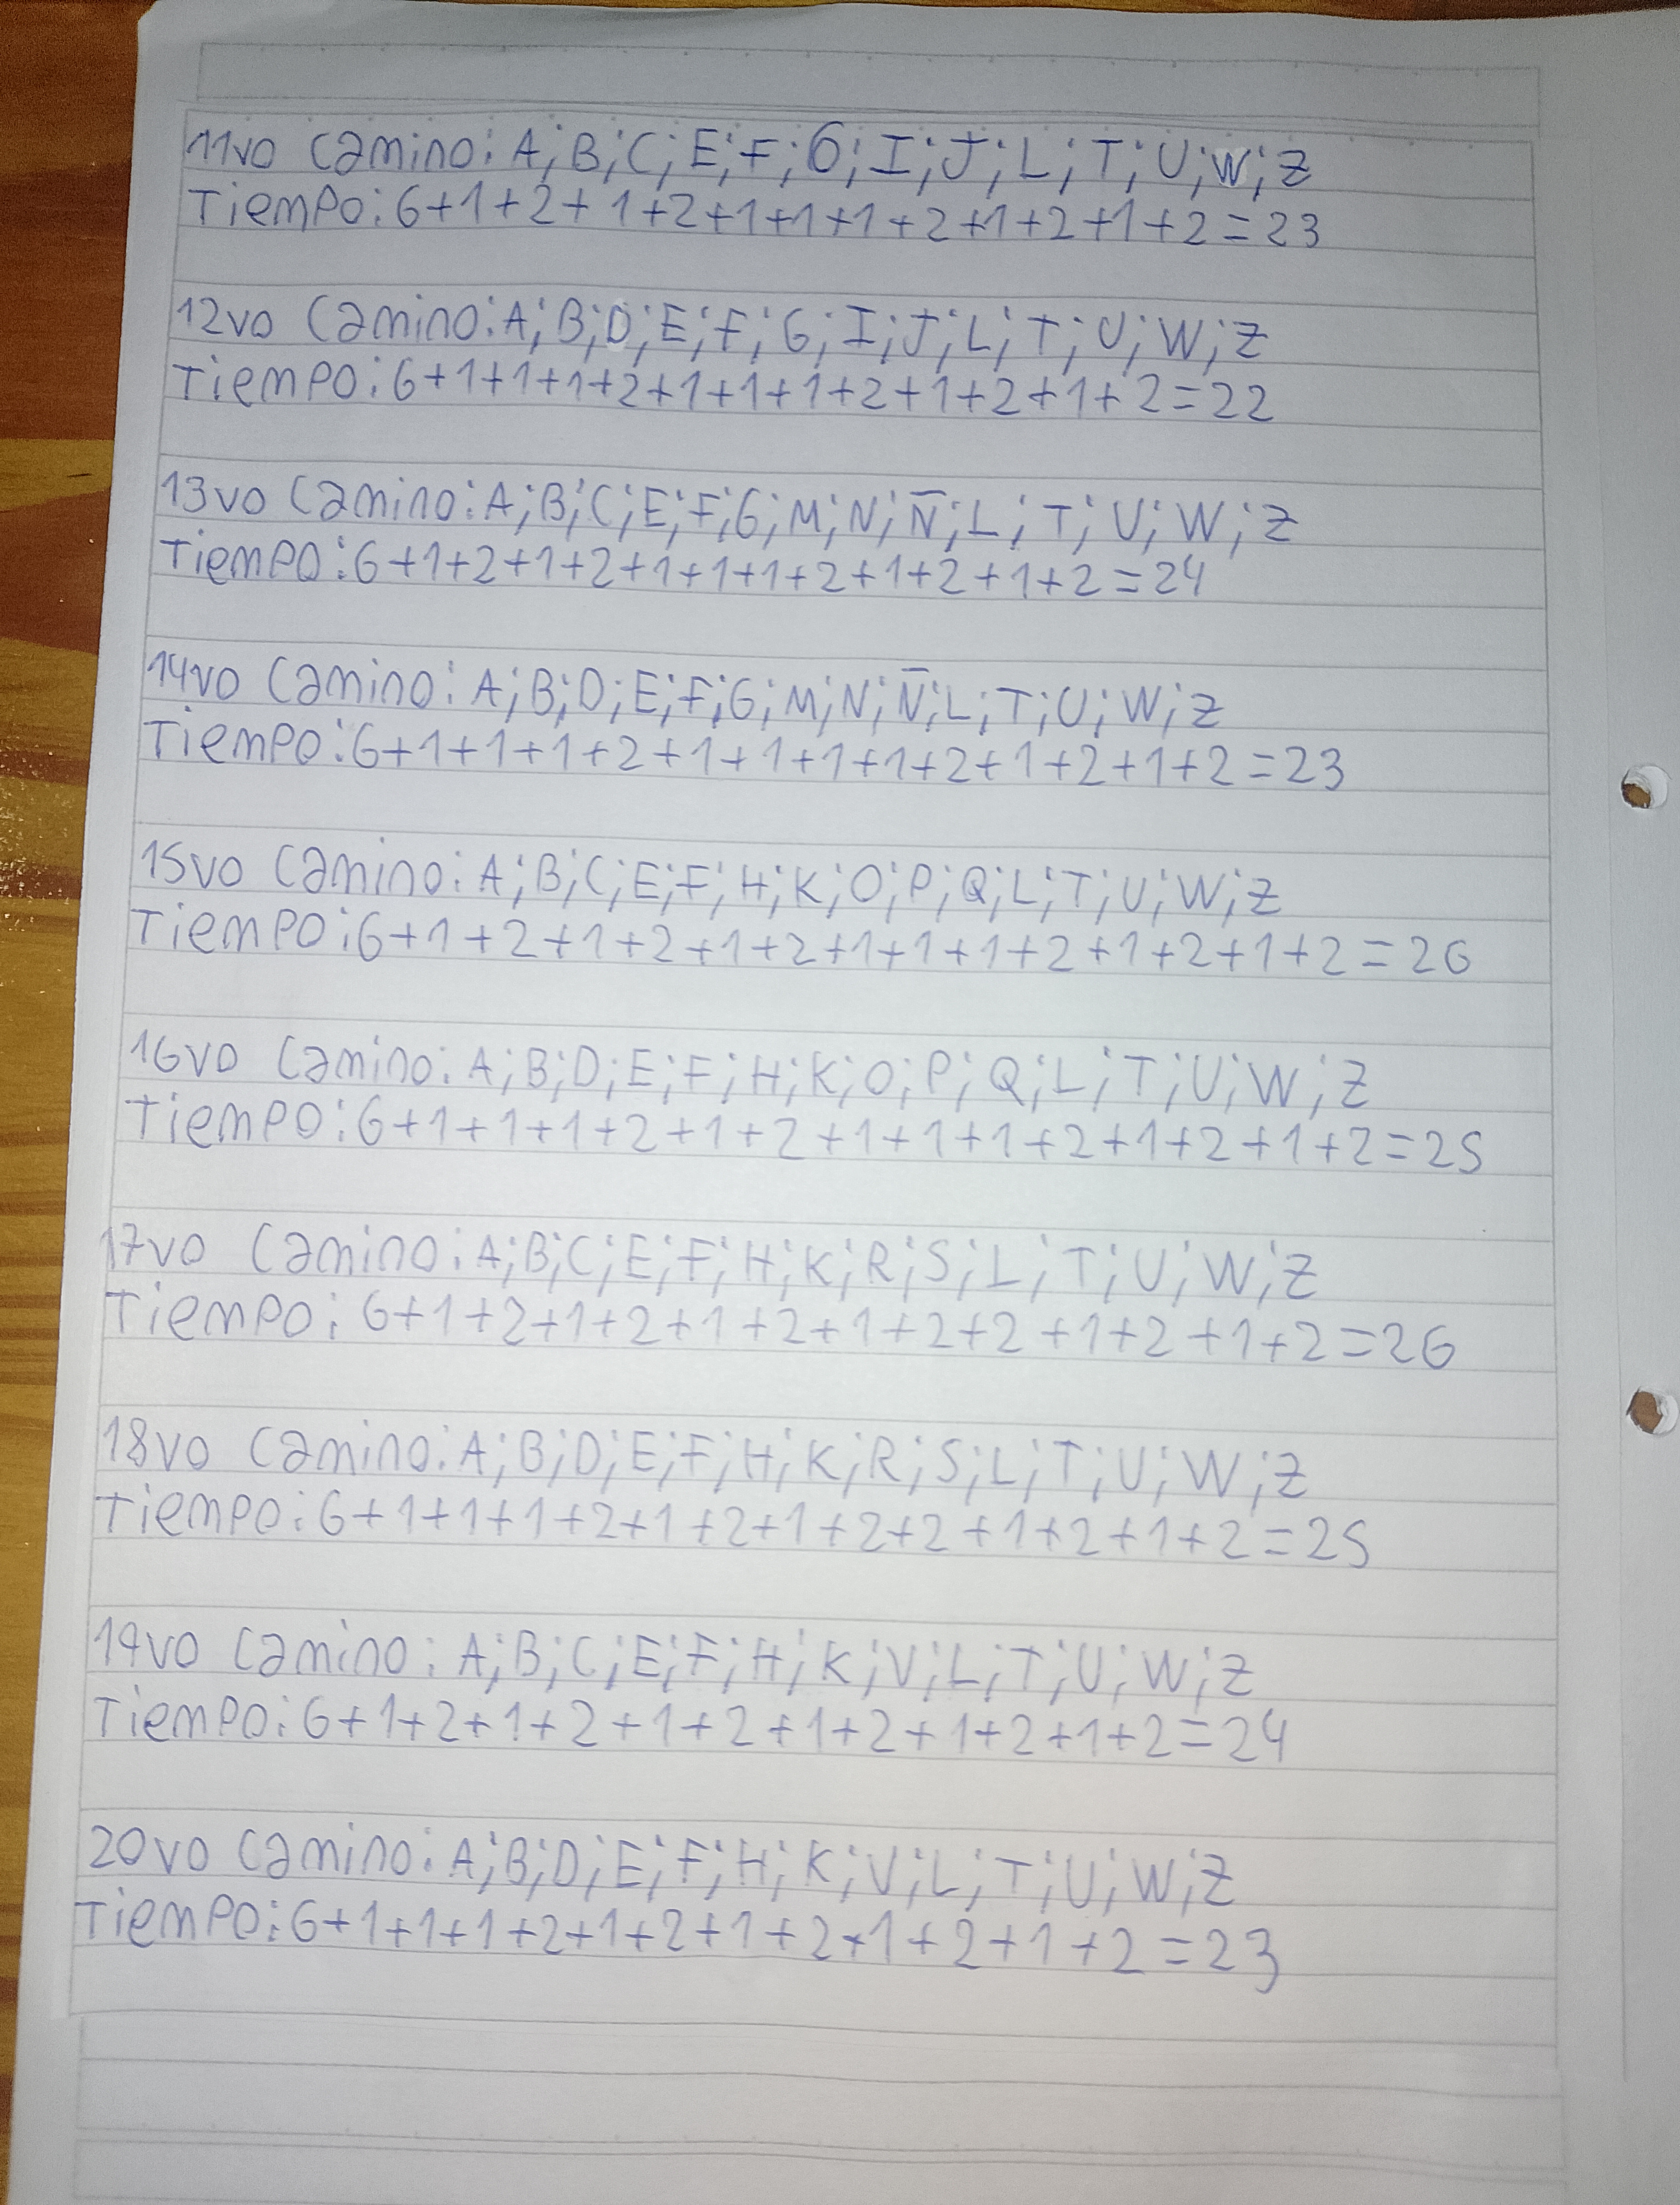 11vo Camino: A; B; C; E; F; G; I; J; L; T; U; W; Z
Tiempo: 6+1+2+1+2+1+1+1+2+1+2+1+2=23
12vo Camino: A; B; D; E; F; G; I; J; L; T; U; W; Z
Tiempo: 6+1+1+1+2+1+1+1+2+1+2+1+2=22
13vo Camino: A; B; C; E; F; G; M; N; Ñ; L; T; U; W; Z
Tiempo: 6+1+2+1+2+1+1+1+2+1+2+1+2=24
14vo Camino: A; B; D; E; F; G; M; N; Ñ; L; T; U; W; Z
Tiempo: 6+1+1+1+2+1+1+1+1+2+1+2+1+2=23
15vo Camino: A; B; C; E; F; H; K; O; P; Q; L; T; U; W; Z
Tiempo: 6+1+2+1+2+1+2+1+1+1+2+1+2+1+2=26
16vo Camino: A; B; D; E; F; H; K; O; P; Q; L; T; U; W; Z
Tiempo: 6+1+1+1+2+1+2+1+1+1+2+1+2+1+2=25
17vo Camino: A; B; C; E; F; H; K; R; S; L; T; U; W; Z
Tiempo: 6+1+2+1+2+1+2+1+2+2+1+2+1+2=26
18vo Camino: A; B; D; E; F; H; K; R; S; L; T; U; W; Z
Tiempo: 6+1+1+1+2+1+2+1+2+2+1+2+1+2=25
19vo Camino: A; B; C; E; F; H; K; V; L; T; U; W; Z
Tiempo: 6+1+2+1+2+1+2+1+2+1+2+1+2=24
20vo Camino: A; B; D; E; F; H; K; V; L; T; U; W; Z
Tiempo: 6+1+1+1+2+1+2+1+2+1+2+1+2=23